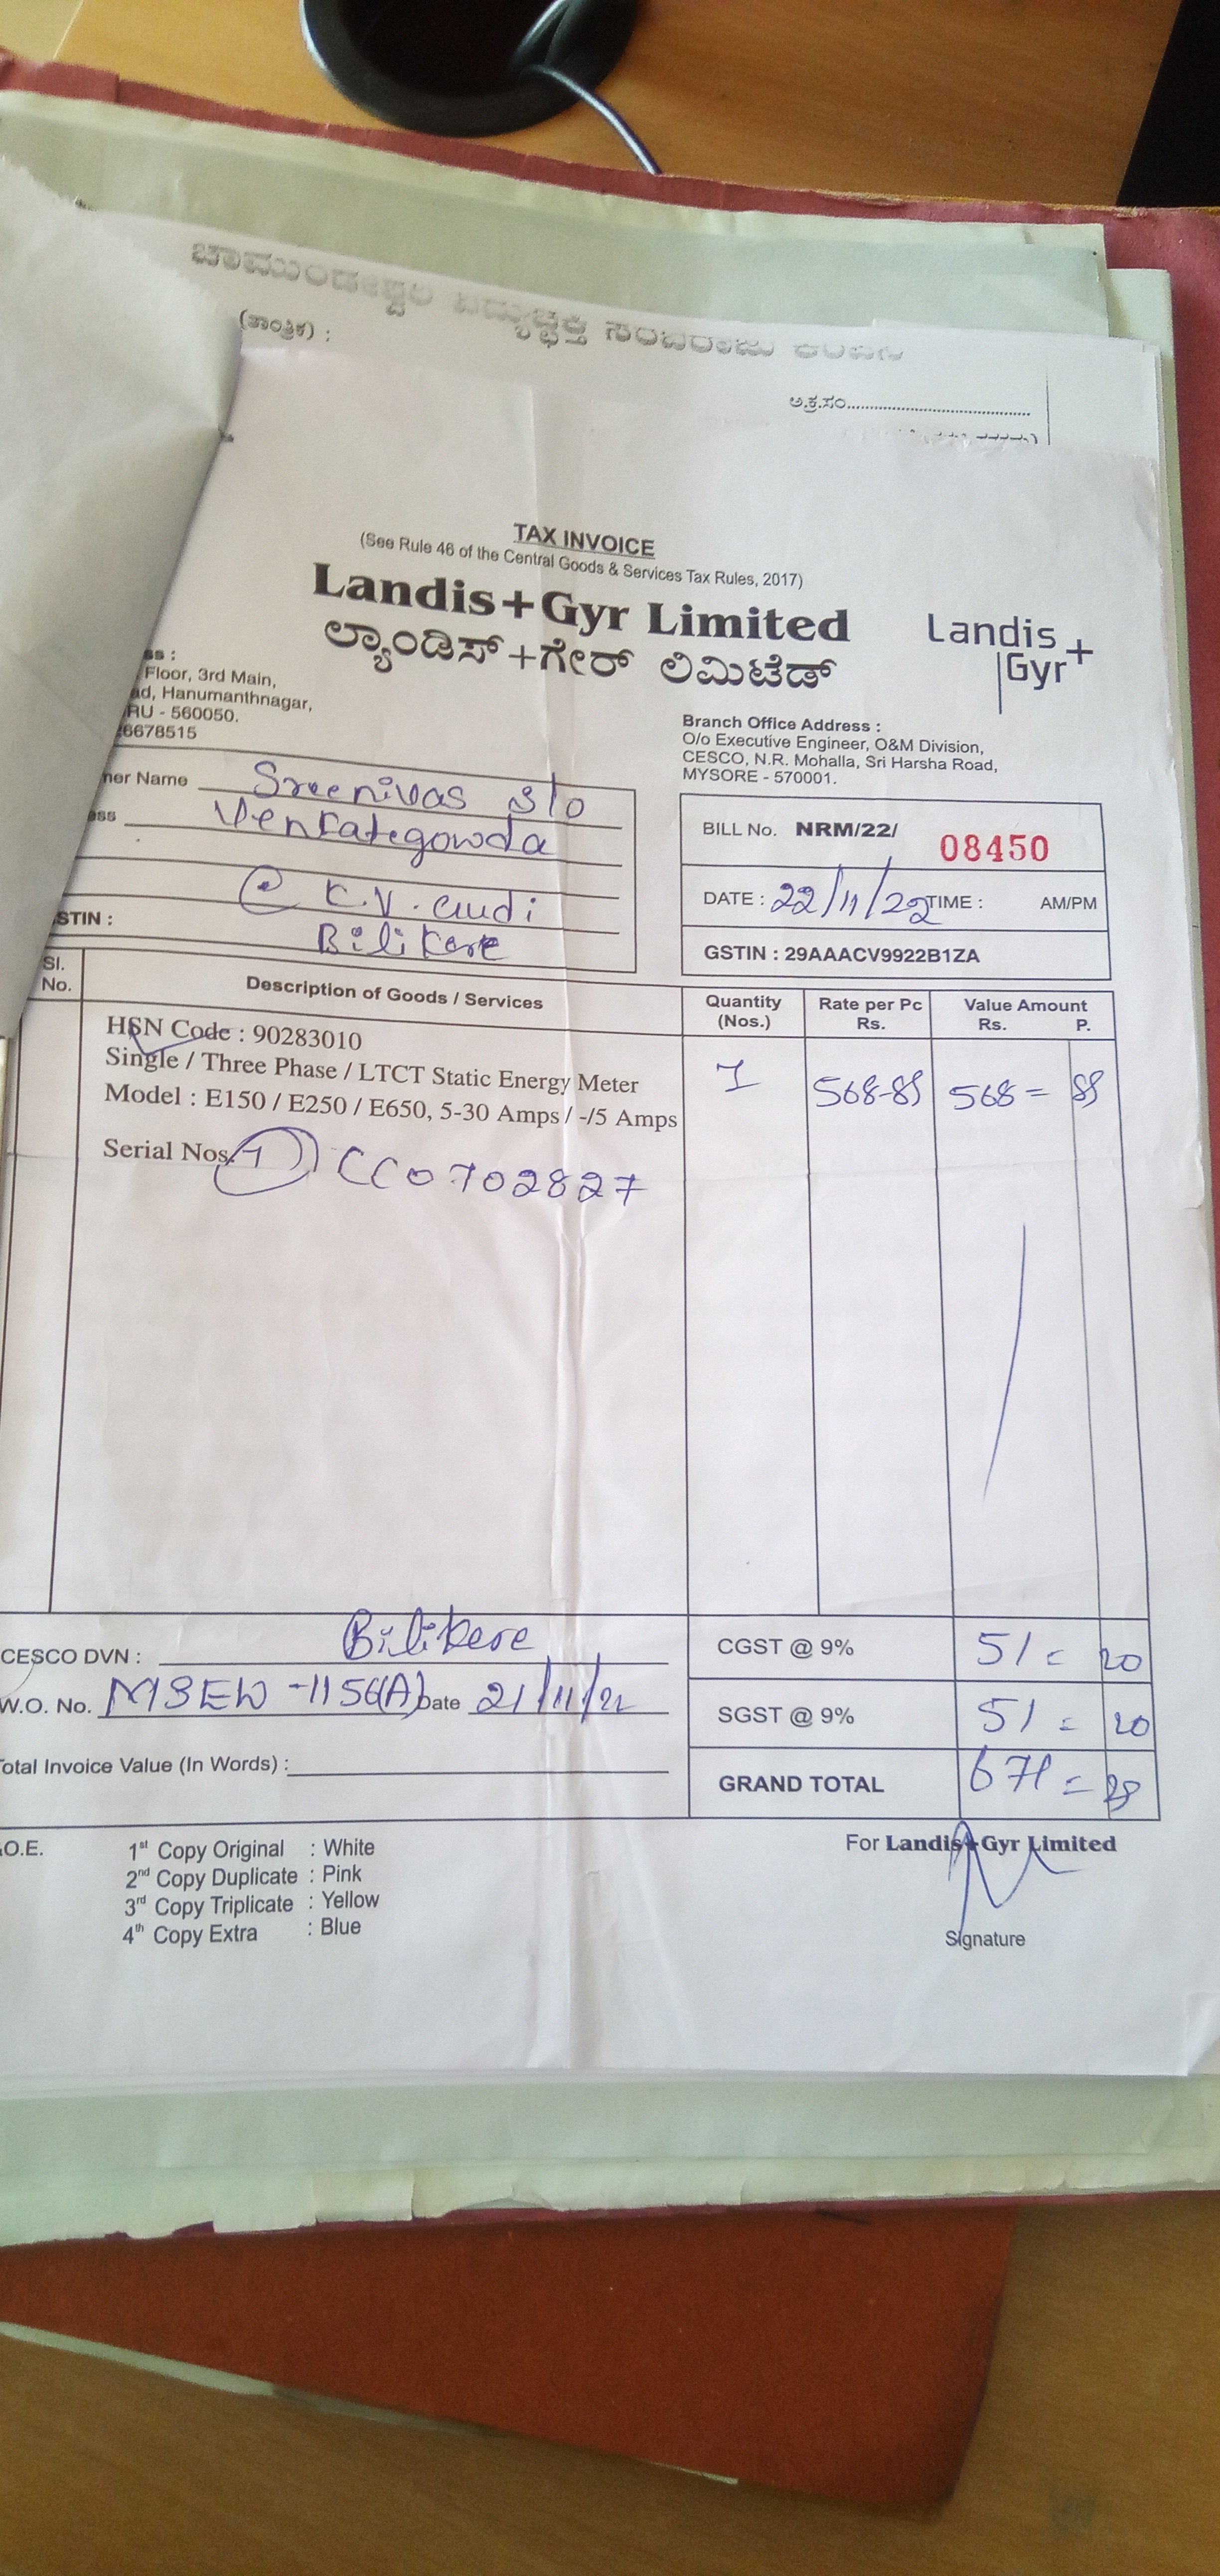 ಚಾಮುಂಡೇಶ್ವರಿ ವಿದ್ಯುಚ್ಛಕ್ತಿ ಸರಬರಾಜು
(ತಾಂತ್ರಿಕ) :
ಅ.ಕ್ರ.ಸಂ.
TAX INVOICE
(See Rule 46 of the Central Goods & Services Tax Rules, 2017)
Landis+Gyr Limited
ಲ್ಯಾಂಡಿಸ್+ಗೇರ್ ಲಿಮಿಟೆಡ್
Landis+
Gyr
ss :
Floor, 3rd Main,
ad, Hanumanthnagar,
RU - 560050.
26678515
Branch Office Address :
O/o Executive Engineer, O&M Division,
CESCO, N.R. Mohalla, Sri Harsha Road,
MYSORE - 570001.
ner Name Sreenivas S/o
ess Venkategowda
@ K.V. Gudi
STIN : Bilikere
BILL No. NRM/22/ 08450
DATE : 22/11/22 TIME : AM/PM
GSTIN : 29AAACV9922B1ZA
Sl. No. Description of Goods / Services Quantity (Nos.) Rate per Pc Rs. Value Amount Rs. P.
HSN Code : 90283010
Single / Three Phase / LTCT Static Energy Meter 1 568-89 568= 89
Model : E150 / E250 / E650, 5-30 Amps / -/5 Amps
Serial Nos. 1) CC0702827
CESCO DVN : Bilikere
W.O. No. MSEW-1156(A) Date 21/11/22
Total Invoice Value (In Words) :
CGST @ 9% 51= 20
SGST @ 9% 51= 20
GRAND TOTAL 671=
.O.E.
1st Copy Original : White
2nd Copy Duplicate : Pink
3rd Copy Triplicate : Yellow
4th Copy Extra : Blue
For Landis+Gyr Limited
Signature